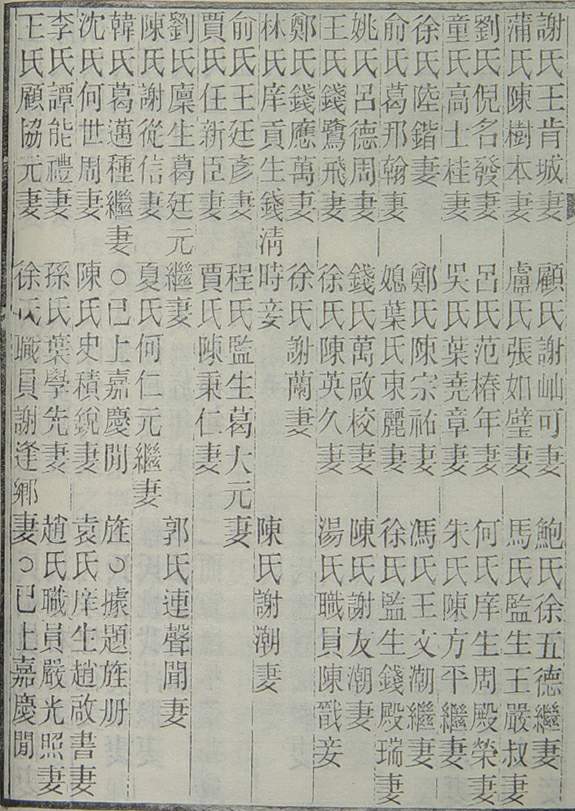 謝氏王肯城妻 顧氏謝屾可妻 鮑氏徐五德繼妻
蒲氏陳樹本妻 盧氏張如璧妻 馬氏監生王嚴叔妻
劉氏倪名發妻 呂氏范椿年妻 何氏庠生周殿榮妻
童氏高士桂妻 吳氏葉堯章妻 朱氏陳方平繼妻
徐氏陸鍇妻 鄭氏陳宗祐妻 馮氏王文潮繼妻
俞氏葛那翰妻 媳葉氏東麗妻 徐氏監生錢殿瑞妻
姚氏呂德周妻 錢氏萬啟校妻 陳氏謝友潮妻
王氏錢鷺飛妻 徐氏陳英久妻 湯氏職員陳戩妾
鄭氏錢應萬妻 徐氏謝蘭妻
林氏庠貢生錢淸時妾 陳氏謝潮妻
俞氏王廷彥妻 程氏監生葛大元妻
賈氏任新臣妻 賈氏陳秉仁妻
劉氏廩生葛廷元繼妻 郭氏連聲聞妻
陳氏謝從信妻 夏氏何仁元繼妻
韓氏葛邁種繼妻○已上嘉慶閒旌○據題旌册
沈氏何世周妻 陳氏史積銳妻 袁氏庠生趙啟書妻
李氏譚能禮妻 孫氏葉學先妻 趙氏職員嚴光照妻
王氏顧協元妻 徐氏職員謝逢鄉妻○已上嘉慶閒